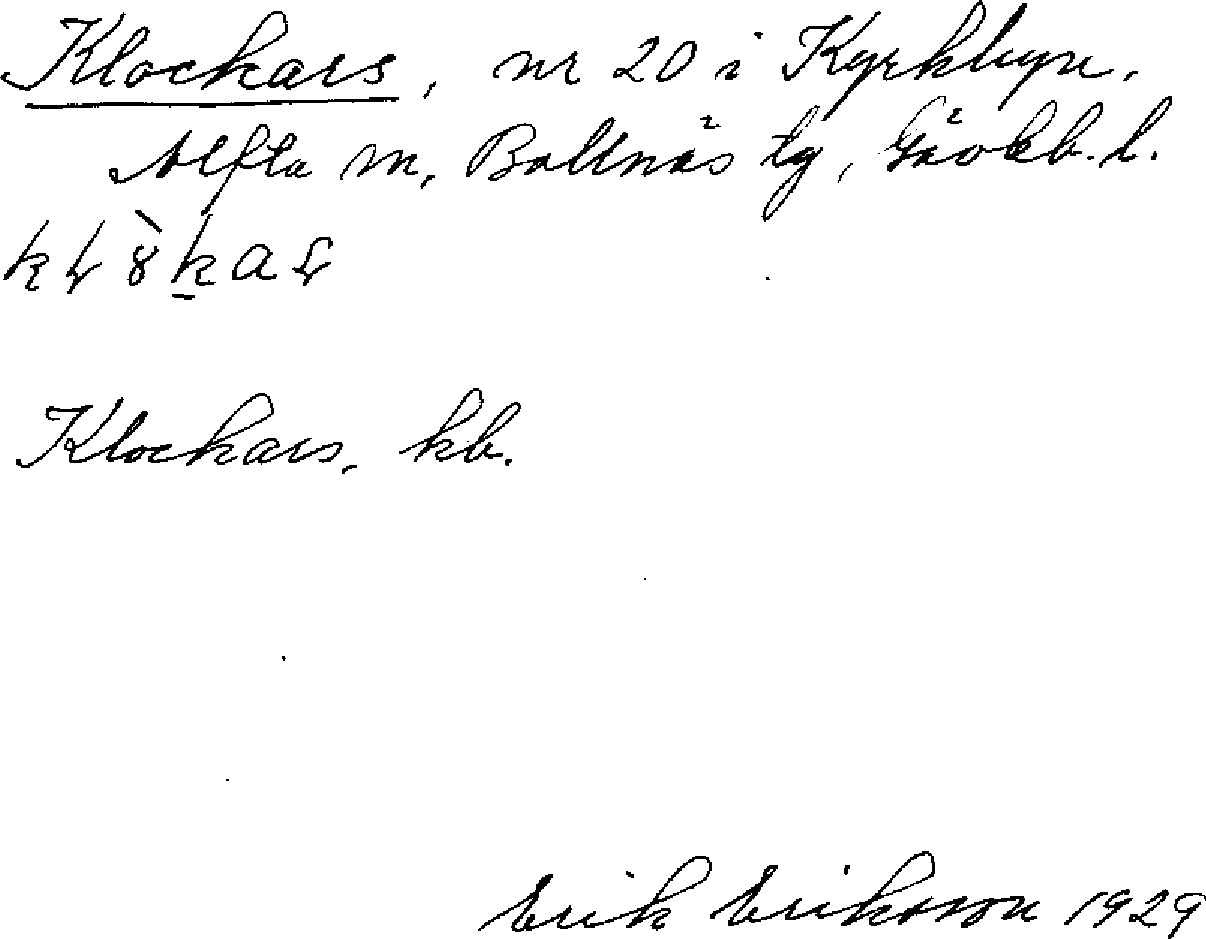 Klockars, nr 20 i Kyrkbyn.
Alfta sn, Bollnäs tg, Gävleb. l.
Klockars, kb.
Erik Eriksson 1929